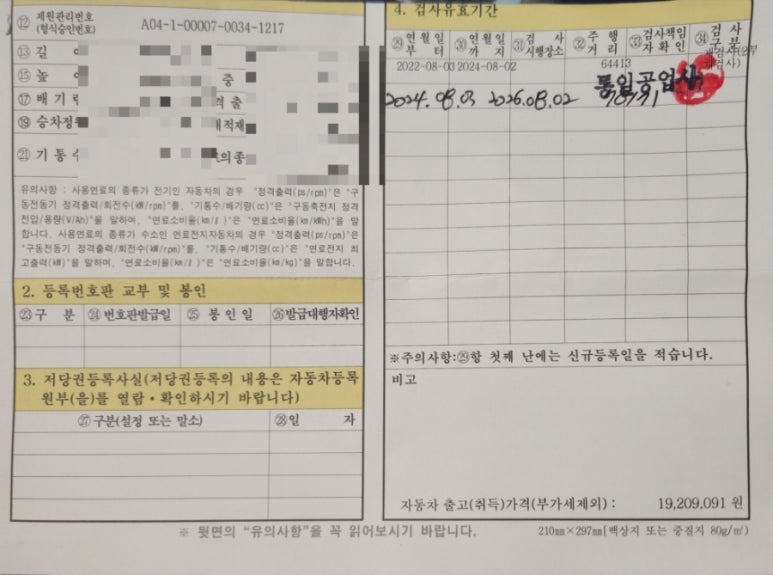 ⑫ 제원관리번호 (형식승인번호) A04-1-00007-0034-1217
⑬ 길
⑮ 높 중
⑰ 배기 출
⑲ 승차정 적재
㉑ 기통수 의종
유의사항 : 사용연료의 종류가 전기인 자동차의 경우 "정격출력(ps/rpm)"은 "구
동전동기 정격출력/회전수(kW/rpm)"를, "기통수/배기량(cc)"은 "구동축전지 정격
전압/용량(V/Ah)"을 말하며, "연료소비율(km/ℓ)"은 "연료소비율(km/kWh)"을 말
합니다. 사용연료의 종류가 수소인 연료전지자동차의 경우 "정격출력(ps/rpm)"은
"구동전동기 정격출력/회전수(kW/rpm)"를, "기통수/배기량(cc)"은 "연료전지 최
고출력(kW)"을 말하며, "연료소비율(km/ℓ)"은 "연료소비율(km/kg)"을 말합니다.
2. 등록번호판 교부 및 봉인
㉓ 구 분 ㉔ 번호판발급일 ㉕ 봉 인 일 ㉖ 발급대행자확인
3. 저당권등록사실(저당권등록의 내용은 자동차등록
원부(을)를 열람・확인하시기 바랍니다)
㉗ 구분(설정 또는 말소) ㉘ 일 자
4. 검사유효기간
㉙ 연월일 부터 ㉚ 연월일 까지 ㉛ 검 사 시행장소 ㉜ 주 행 거 리 ㉝ 검사책임 자확인 ㉞ 검 사 구 분
2022-08-03 2024-08-02 64413
통일공업사
2024.08.03 2026.08.02 70771
※주의사항:㉙항 첫째 난에는 신규등록일을 적습니다.
비고
자동차 출고(취득)가격(부가세제외) : 19,209,091 원
※ 뒷면의 "유의사항"을 꼭 읽어보시기 바랍니다.
210㎜×297㎜[백상지 또는 중질지 80g/㎡)